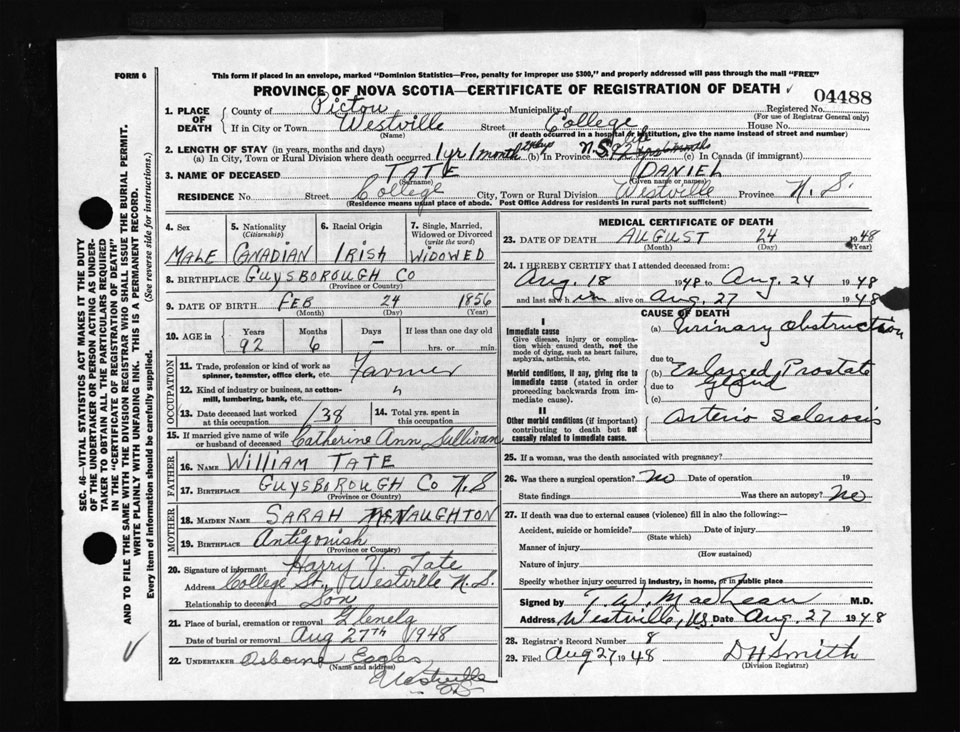 FORM 6
This form if placed in an envelope, marked "Dominion Statistics—Free, penalty for improper use $300," and properly addressed will pass through the mail "FREE"
PROVINCE OF NOVA SCOTIA—CERTIFICATE OF REGISTRATION OF DEATH ✓
04488
1. PLACE OF DEATH
County of Pictou Municipality of Registered No.
(For use of Registrar General only)
If in City or Town Westville Street College House No.
(Name) (If death occurred in a hospital or institution, give the name instead of street and number)
2. LENGTH OF STAY (in years, months and days)
(a) In City, Town or Rural Division where death occurred 1 yr 1 month 24 days (b) In Province N.S. 92 6 months (c) In Canada (if immigrant)
3. NAME OF DECEASED TATE DANIEL
(Surname) (Given name or names)
RESIDENCE No. Street College City, Town or Rural Division Westville Province N. S.
(Residence means usual place of abode. Post Office Address for residents in rural parts not sufficient)
4. Sex
MALE
5. Nationality
(Citizenship)
CANADIAN
6. Racial Origin
IRISH
7. Single, Married, Widowed or Divorced
(write the word)
WIDOWED
8. BIRTHPLACE GUYSBOROUGH CO
(Province or Country)
9. DATE OF BIRTH FEB 24 1856
(Month) (Day) (Year)
10. AGE in
Years Months Days If less than one day old
92 6 — hrs. or min.
OCCUPATION
11. Trade, profession or kind of work as
spinner, teamster, office clerk, etc. Farmer
12. Kind of industry or business, as cotton-
mill, lumbering, bank, etc. "
13. Date deceased last worked
at this occupation 138
14. Total yrs. spent in
this occupation
15. If married give name of wife
or husband of deceased Catherine Ann Sullivan
FATHER
16. NAME WILLIAM TATE
17. BIRTHPLACE GUYSBOROUGH CO N.S
(Province or Country)
MOTHER
18. MAIDEN NAME SARAH McNAUGHTON
19. BIRTHPLACE Antigonish
(Province or Country)
20. Signature of informant Harry V. Tate
Address College St., Westville N. S.
Relationship to deceased Son
21. Place of burial, cremation or removal Glenelg
Date of burial or removal Aug 27TH 1948
22. UNDERTAKER Osborne Eagles
(Name and address)
Westville
NS
MEDICAL CERTIFICATE OF DEATH
23. DATE OF DEATH AUGUST 24 1948
(Month) (Day) (Year)
24. I HEREBY CERTIFY that I attended deceased from:
Aug. 18 1948 to Aug. 24 1948
and last saw him alive on Aug. 27 1948
CAUSE OF DEATH
I
Immediate cause
Give disease, injury or complica-
tion which caused death, not the
mode of dying, such as heart failure,
asphyxia, asthenia, etc.
(a) Urinary Obstruction
due to
Morbid conditions, if any, giving rise to
immediate cause (stated in order
proceeding backwards from
immediate cause).
(b) Enlarged Prostate
due to Gland
(c)
II
Other morbid conditions (if important)
contributing to death but not
causally related to immediate cause.
Arterio Sclerosis
25. If a woman, was the death associated with pregnancy?
26. Was there a surgical operation? No Date of operation 19
State findings Was there an autopsy? No
27. If death was due to external causes (violence) fill in also the following:—
Accident, suicide or homicide? Date of injury 19
(State which)
Manner of injury
(How sustained)
Nature of injury
Specify whether injury occurred in industry, in home, or in public place
Signed by T. W. MacLean M.D.
Address Westville, N.S. Date Aug. 27 1948
28. Registrar's Record Number 8
29. Filed Aug 27 1948 D H Smith
(Division Registrar)
SEC. 46—VITAL STATISTICS ACT MAKES IT THE DUTY
OF THE UNDERTAKER OR PERSON ACTING AS UNDER-
TAKER TO OBTAIN ALL THE PARTICULARS REQUIRED
IN THE "CERTIFICATE OF REGISTRATION OF DEATH"
AND TO FILE THE SAME WITH THE DIVISION REGISTRAR WHO SHALL ISSUE THE BURIAL PERMIT.
WRITE PLAINLY WITH UNFADING INK. THIS IS A PERMANENT RECORD.
Every item of information should be carefully supplied. (See reverse side for instructions.)
✓